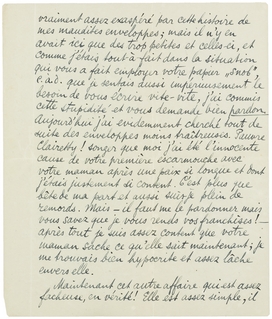 vraiment assez exaspéré par cette histoire de
mes maudites enveloppes; mais il n'y en
avait ici que des trop petites et celles-ci, et
comme j'étais tout à fait dans la situation
qui vous a fait employer votre papier "snob"
c.à.d. que je sentais aussi impérieusement le
besoin de vous écrire vite-vite, j'ai commis
cette stupidité et vous demande bien pardon.
Aujourd'hui j'ai évidemment cherché tout de
suite des enveloppes moins traîtreuses. Pauvre
! songer que moi j'ai été l'innocente
cause de votre première escarmouche avec
votre maman après une paix si longue et dont
j'étais justement si content. C'est plus que
bête de ma part et aussi suis-je plein de
remords. Mais — il faut me le pardonner mais
vous savez que je vous rends vos franchises! —
après tout je suis assez content que votre
maman sache ce qu'elle sait maintenant; je
me trouvais bien hypocrite et assez lâche
envers elle.
Maintenant cet autre affaire qui est assez
fâcheuse, en vérité! Elle est assez simple, il